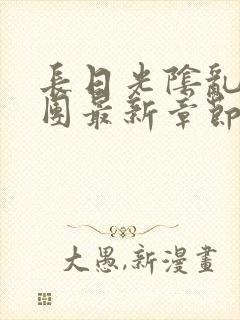 長日光陰亂
團最新章節
大愚,新漫畫